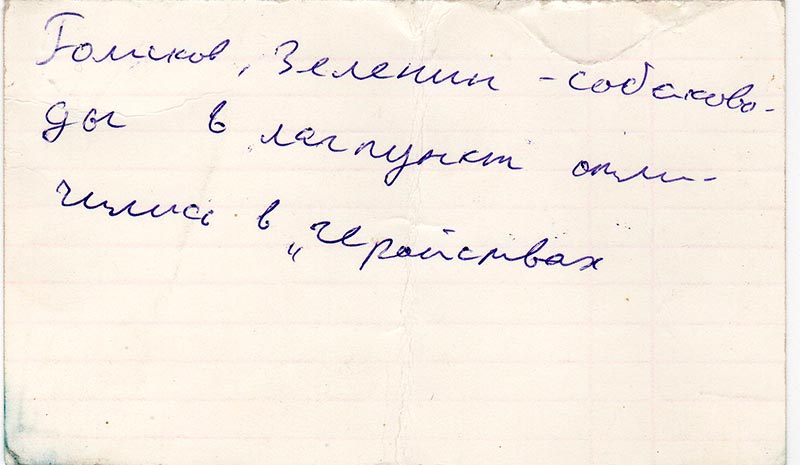 Голиков, Зеленин - собаково-
ды в лагпункт отли-
чились в „геройствах